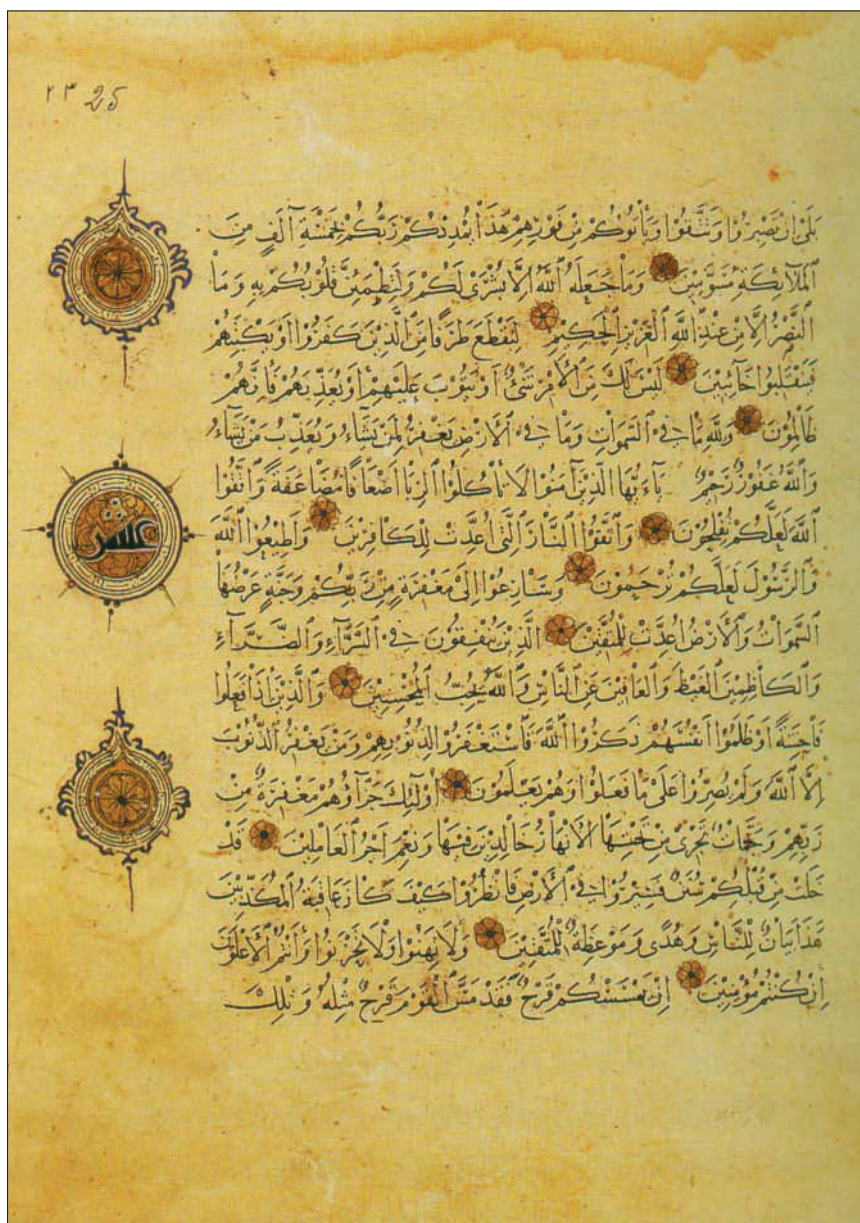 ٢٣ 25
بَلَى إِنْ تَصْبِرُوا وَتَتَّقُوا وَيَأْتُوكُمْ مِنْ فَوْرِهِمْ هَذَا يُمْدِدْكُمْ رَبُّكُمْ بِخَمْسَةِ آلَافٍ مِنَ
الْمَلَائِكَةِ مُسَوِّمِينَ وَمَا جَعَلَهُ اللَّهُ إِلَّا بُشْرَى لَكُمْ وَلِتَطْمَئِنَّ قُلُوبُكُمْ بِهِ وَمَا
النَّصْرُ إِلَّا مِنْ عِنْدِ اللَّهِ الْعَزِيزِ الْحَكِيمِ لِيَقْطَعَ طَرَفًا مِنَ الَّذِينَ كَفَرُوا أَوْ يَكْبِتَهُمْ
فَيَنْقَلِبُوا خَائِبِينَ لَيْسَ لَكَ مِنَ الْأَمْرِ شَيْءٌ أَوْ يَتُوبَ عَلَيْهِمْ أَوْ يُعَذِّبَهُمْ فَإِنَّهُمْ
ظَالِمُونَ وَلِلَّهِ مَا فِي السَّمَوَاتِ وَمَا فِي الْأَرْضِ يَغْفِرُ لِمَنْ يَشَاءُ وَيُعَذِّبُ مَنْ يَشَاءُ
وَاللَّهُ غَفُورٌ رَحِيمٌ يَا أَيُّهَا الَّذِينَ آمَنُوا لَا تَأْكُلُوا الرِّبَا أَضْعَافًا مُضَاعَفَةً وَاتَّقُوا
اللَّهَ لَعَلَّكُمْ تُفْلِحُونَ وَاتَّقُوا النَّارَ الَّتِي أُعِدَّتْ لِلْكَافِرِينَ وَأَطِيعُوا اللَّهَ
وَالرَّسُولَ لَعَلَّكُمْ تُرْحَمُونَ وَسَارِعُوا إِلَى مَغْفِرَةٍ مِنْ رَبِّكُمْ وَجَنَّةٍ عَرْضُهَا
السَّمَوَاتُ وَالْأَرْضُ أُعِدَّتْ لِلْمُتَّقِينَ الَّذِينَ يُنْفِقُونَ فِي السَّرَّاءِ وَالضَّرَّاءِ
وَالْكَاظِمِينَ الْغَيْظَ وَالْعَافِينَ عَنِ النَّاسِ وَاللَّهُ يُحِبُّ الْمُحْسِنِينَ وَالَّذِينَ إِذَا فَعَلُوا
فَاحِشَةً أَوْ ظَلَمُوا أَنْفُسَهُمْ ذَكَرُوا اللَّهَ فَاسْتَغْفَرُوا لِذُنُوبِهِمْ وَمَنْ يَغْفِرُ الذُّنُوبَ
إِلَّا اللَّهُ وَلَمْ يُصِرُّوا عَلَى مَا فَعَلُوا وَهُمْ يَعْلَمُونَ أُولَئِكَ جَزَاؤُهُمْ مَغْفِرَةٌ مِنْ
رَبِّهِمْ وَجَنَّاتٌ تَجْرِي مِنْ تَحْتِهَا الْأَنْهَارُ خَالِدِينَ فِيهَا وَنِعْمَ أَجْرُ الْعَامِلِينَ قَدْ
خَلَتْ مِنْ قَبْلِكُمْ سُنَنٌ فَسِيرُوا فِي الْأَرْضِ فَانْظُرُوا كَيْفَ كَانَ عَاقِبَةُ الْمُكَذِّبِينَ
هَذَا بَيَانٌ لِلنَّاسِ وَهُدًى وَمَوْعِظَةٌ لِلْمُتَّقِينَ وَلَا تَهِنُوا وَلَا تَحْزَنُوا وَأَنْتُمُ الْأَعْلَوْنَ
إِنْ كُنْتُمْ مُؤْمِنِينَ إِنْ يَمْسَسْكُمْ قَرْحٌ فَقَدْ مَسَّ الْقَوْمَ قَرْحٌ مِثْلُهُ وَتِلْكَ
عشر